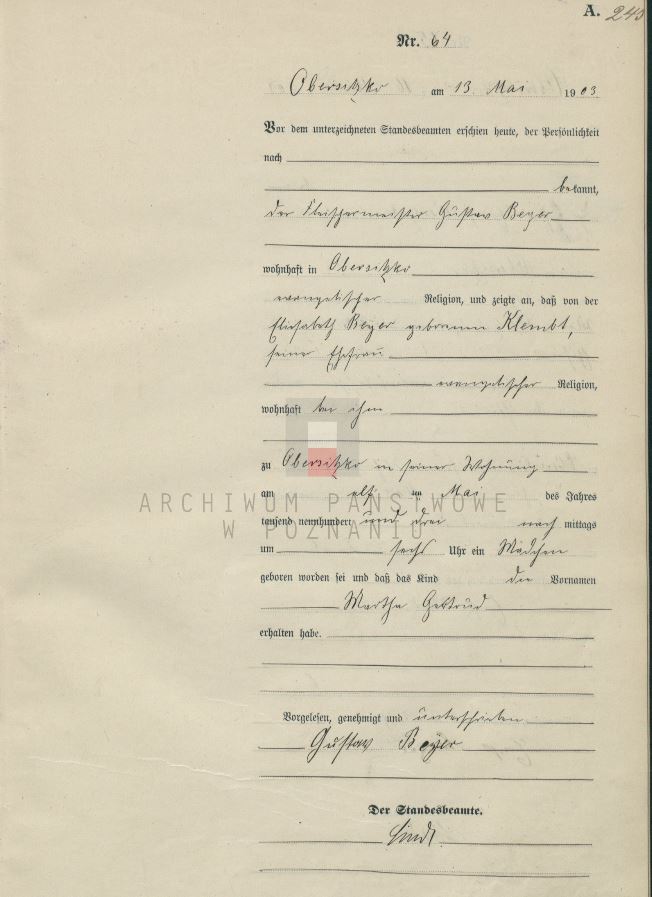 A. 243
Nr. 64
Obersitzko am 13 Mai 1903
Vor dem unterzeichneten Standesbeamten erschien heute, der Persönlichkeit
nach
bekannt,
der Fleischermeister Gustav Beyer
wohnhaft in Obersitzko
evangelischer Religion, und zeigte an, daß von der
Elisabeth Beyer geborenen Klembt,
seiner Ehefrau
evangelischer Religion,
wohnhaft bei ihm
zu Obersitzko in seiner Wohnung
am elf ten Mai des Jahres
ARCHIWUM PAŃSTWOWE
tausend neunhundert und drei nach mittags
W POZNANIU
um sechs Uhr ein Mädchen
geboren worden sei und daß das Kind die Vornamen
Martha Gertrud
erhalten habe.
Vorgelesen, genehmigt und unterschrieben
Gustav Beyer
Der Standesbeamte.